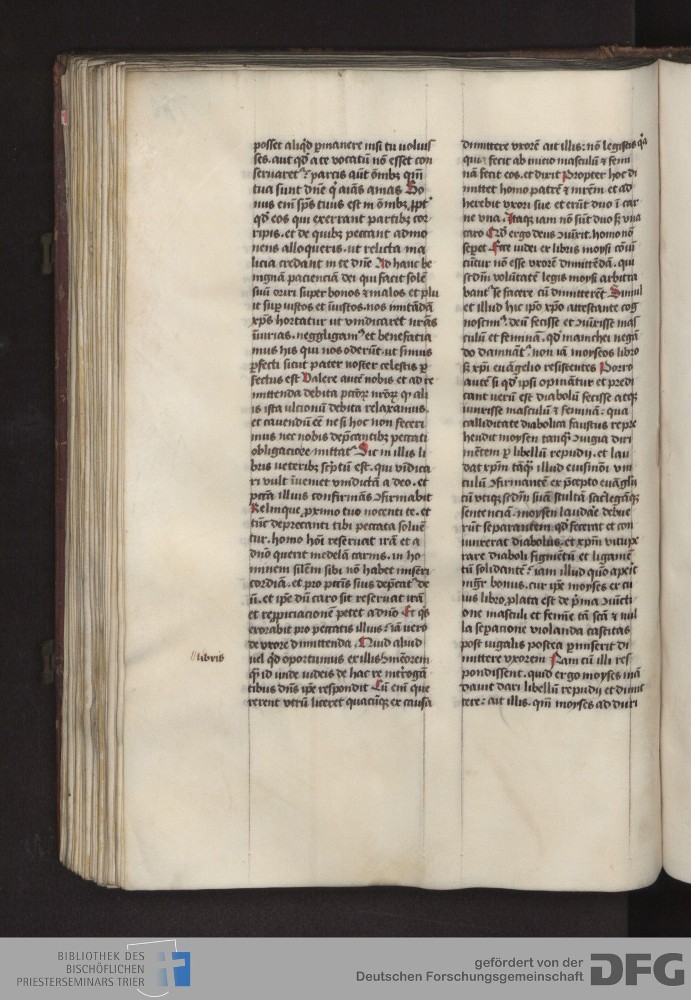 posset aliqd pmanere nisi tu uoluis
ses. aut qd a te vocatū nō esset con
seruaret parcis aūt ōmbꝫ qm̄
tua sunt dn̄e q aīās amas Bo
nus em̄ sps tuus est in ōmbꝫ ppt
qd eos qui exerrant partibꝫ cor
ripis. et de quibꝫ peccant admo
nens alloqueris. ut relicta ma
licia credant in te dn̄e Ad hanc be
nignā pacienciā dei qui facit solē
suū oriri super bonos ⁊ malos et plu
it sup iustos et iniustos. nos imitādā
xp̄s hortatur ut vindicaret nr̄as
iniurias. neggligam⁹ et benefacia
mus his qui nos oderūt. ut simus
pfecti sicut pater noster celestis p
fectus est Valere autē nobis et ad re
mittenda debita pctōꝝ nr̄oꝝ qi ali
is ista ulcionū debita relaxamus.
et cauendū eē ne si hoc non feceri
mus nec nobis dep̄cantibꝫ peccati
obligacione mittat Sic in illis li
bris ueteribꝫ sc̄ptū est. qui vīdica
ri vult īueniet vindictā a deo. et
pctā illius confirmās ꝯfirmabit
Relinque pximo tuo nocenti te. et
tūc deprecanti tibi peccata soluē
tur. homo hoī reseruat irā et a
dn̄o querit medelā carnis. in ho
minem silēm sibi nō habet miseri
cordiā. et pro pctīs suis dep̄cat⁊ de
ū. et ipe dū caro sit reseruat irā
et reppiciacionē petet a dn̄o Et qs
exorabit pro peccatis illius iā uero
de vxore dimittenda. Quid aliud
uel qd oportunius ex illis
qm̄ id unde iudeis de hac re īnterogā
tibus dn̄s ipe respondit Cū em̄ que
rerent vtrū liceret quacūqꝫ ex causa
libris
dimittere vxorē ait illis: nō legistis qa
qui fecit ab inicio masculū ⁊ femi
nā fecit eos. et dixit Propter hoc di
mittet homo patrē ⁊ mrēm et ad
herebit vxori sue et erūt duo ī car
ne vna. Itaqꝫ iam nō sūt duo sꝫ vna
caro Qd ergo deus ꝯiūxit. homo nō
sepet Ecce iudei ex libris moysi cōuī
cūtur nō esse vxorē dimittēdā. qui
scdm̄ volūtatē legis moysi arbitra
bant⁊ se facere cū dimitterēt Simul
et illud hic ipō xpō attestante cog
noscim⁹. deū fecisse et ꝯiūxisse mas
culū et feminā. qd manichei negā
do dāmnāt⁊. non iā moyseos libro
sꝫ xpi euāgelio resistentes Porro
autē si qd ipsi opināt⁊ et predi
cant verū est diabolū fecisse atqꝫ
iunxisse masculū ⁊ feminā: qua
calliditate diabolica faustus repre
hendit moysen tanqꝫ ꝯiugia diri
mētem p libellū repudij. et lau
dat xpm̄ tāqꝫ illud eiusmōi vin
culū ꝯfirmantē ex p̄cepto euāglij
cū vtiqꝫ scdm̄ suā stultā sacrilegāqꝫ
sentenciā. moysen laudāe debue
rūt separantem qd fecerat et con
iunxerat diabolus. et xpm̄ vitupe
rare diaboli figmētū et ligamē
tū solidantē iam illud quō apeit
mgr̄ bonus. cur ipe moyses ex cu
ius libro plata est de p̄ma ꝯiūcti
one masculi et femīe tā sc̄tā ⁊ nul
la sepacione violanda castitas
post iugalis postea pmiserit di
mittere vxorem Nam cū illi res
pondissent. quid ergo moyses mā
dauit dari libellū repudij et dimit
tere: ait illis. qm̄ moyses ad duri
BIBLIOTHEK DES
BISCHÖFLICHEN
PRIESTERSEMINARS TRIER
gefördert von der
Deutschen Forschungsgemeinschaft
DFG